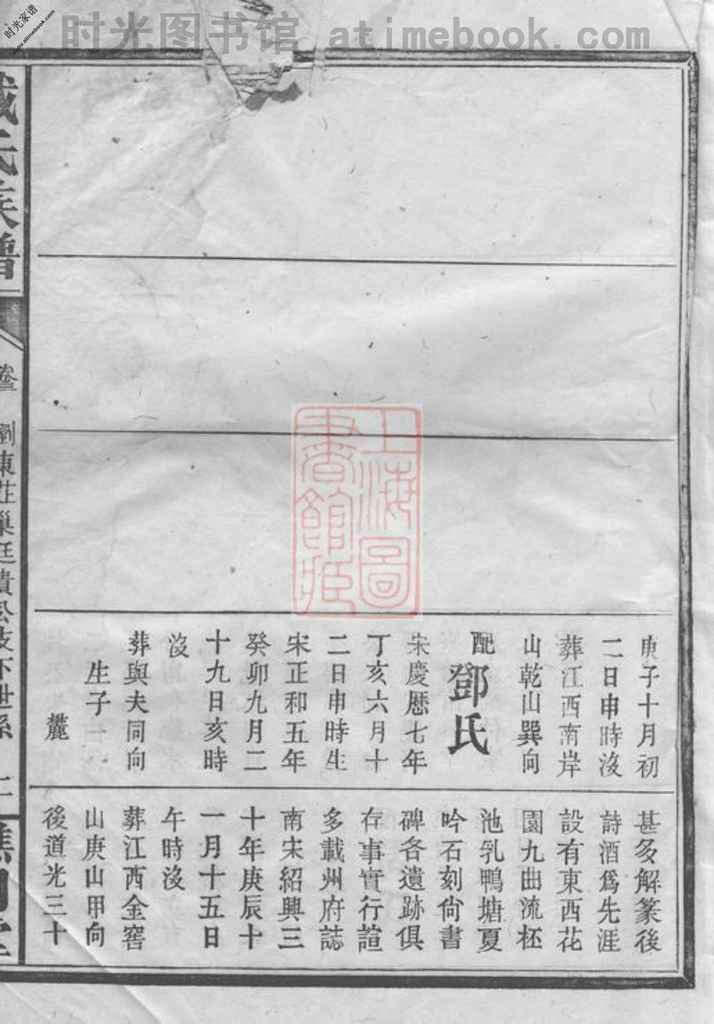 时光图书馆 atimebook.com
时光家谱
www.atimebook.com
庚子十月初
二日申時沒
葬江西南岸
山乾山巽向
配鄧氏
宋慶歷七年
丁亥六月十
二日申時生
宋正和五年
癸卯九月二
十九日亥時
沒
葬與夫同向
生子一
麓
甚多解篆後
詩酒為先涯
設有東西花
園九曲流杯
池乳鴨塘夏
吟石刻尙書
碑各遺跡俱
存事實行諠
多載州府誌
南宋紹興三
十年庚辰十
一月十五日
午時沒
葬江西金窖
山庚山甲向
後道光三十
氏族譜
卷三
瀏東莊巢廷貴公支下世系
上海圖
書館